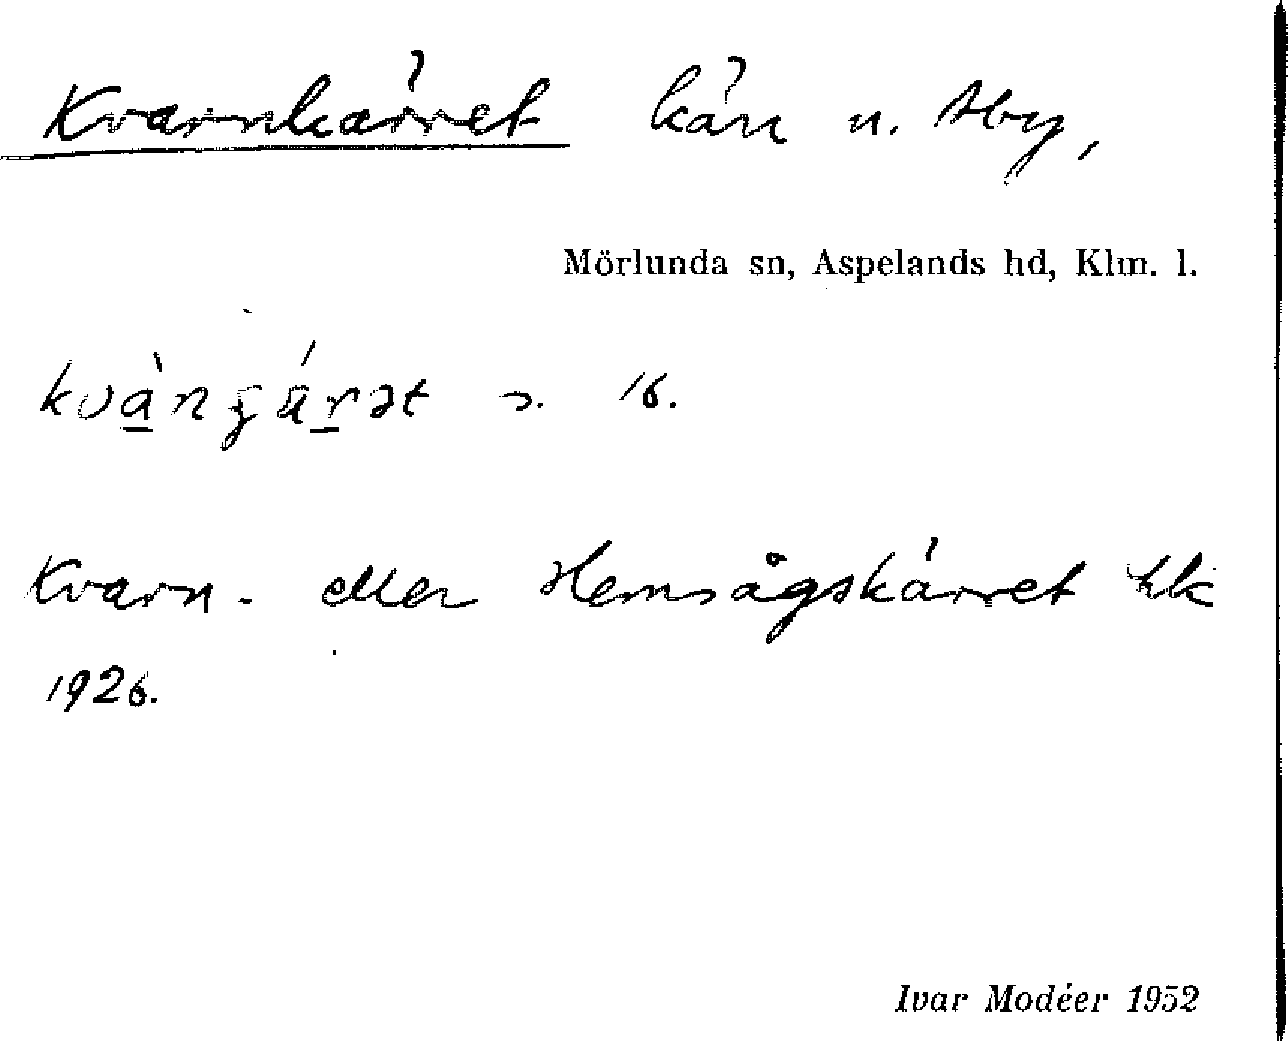 Kvarnkärret kärr u. Aby,
Mörlunda sn, Aspelands hd, Klm. l.
s. 16.
Kvarn- eller Hemsågskärret hk
1926.
Ivar Modéer 1952